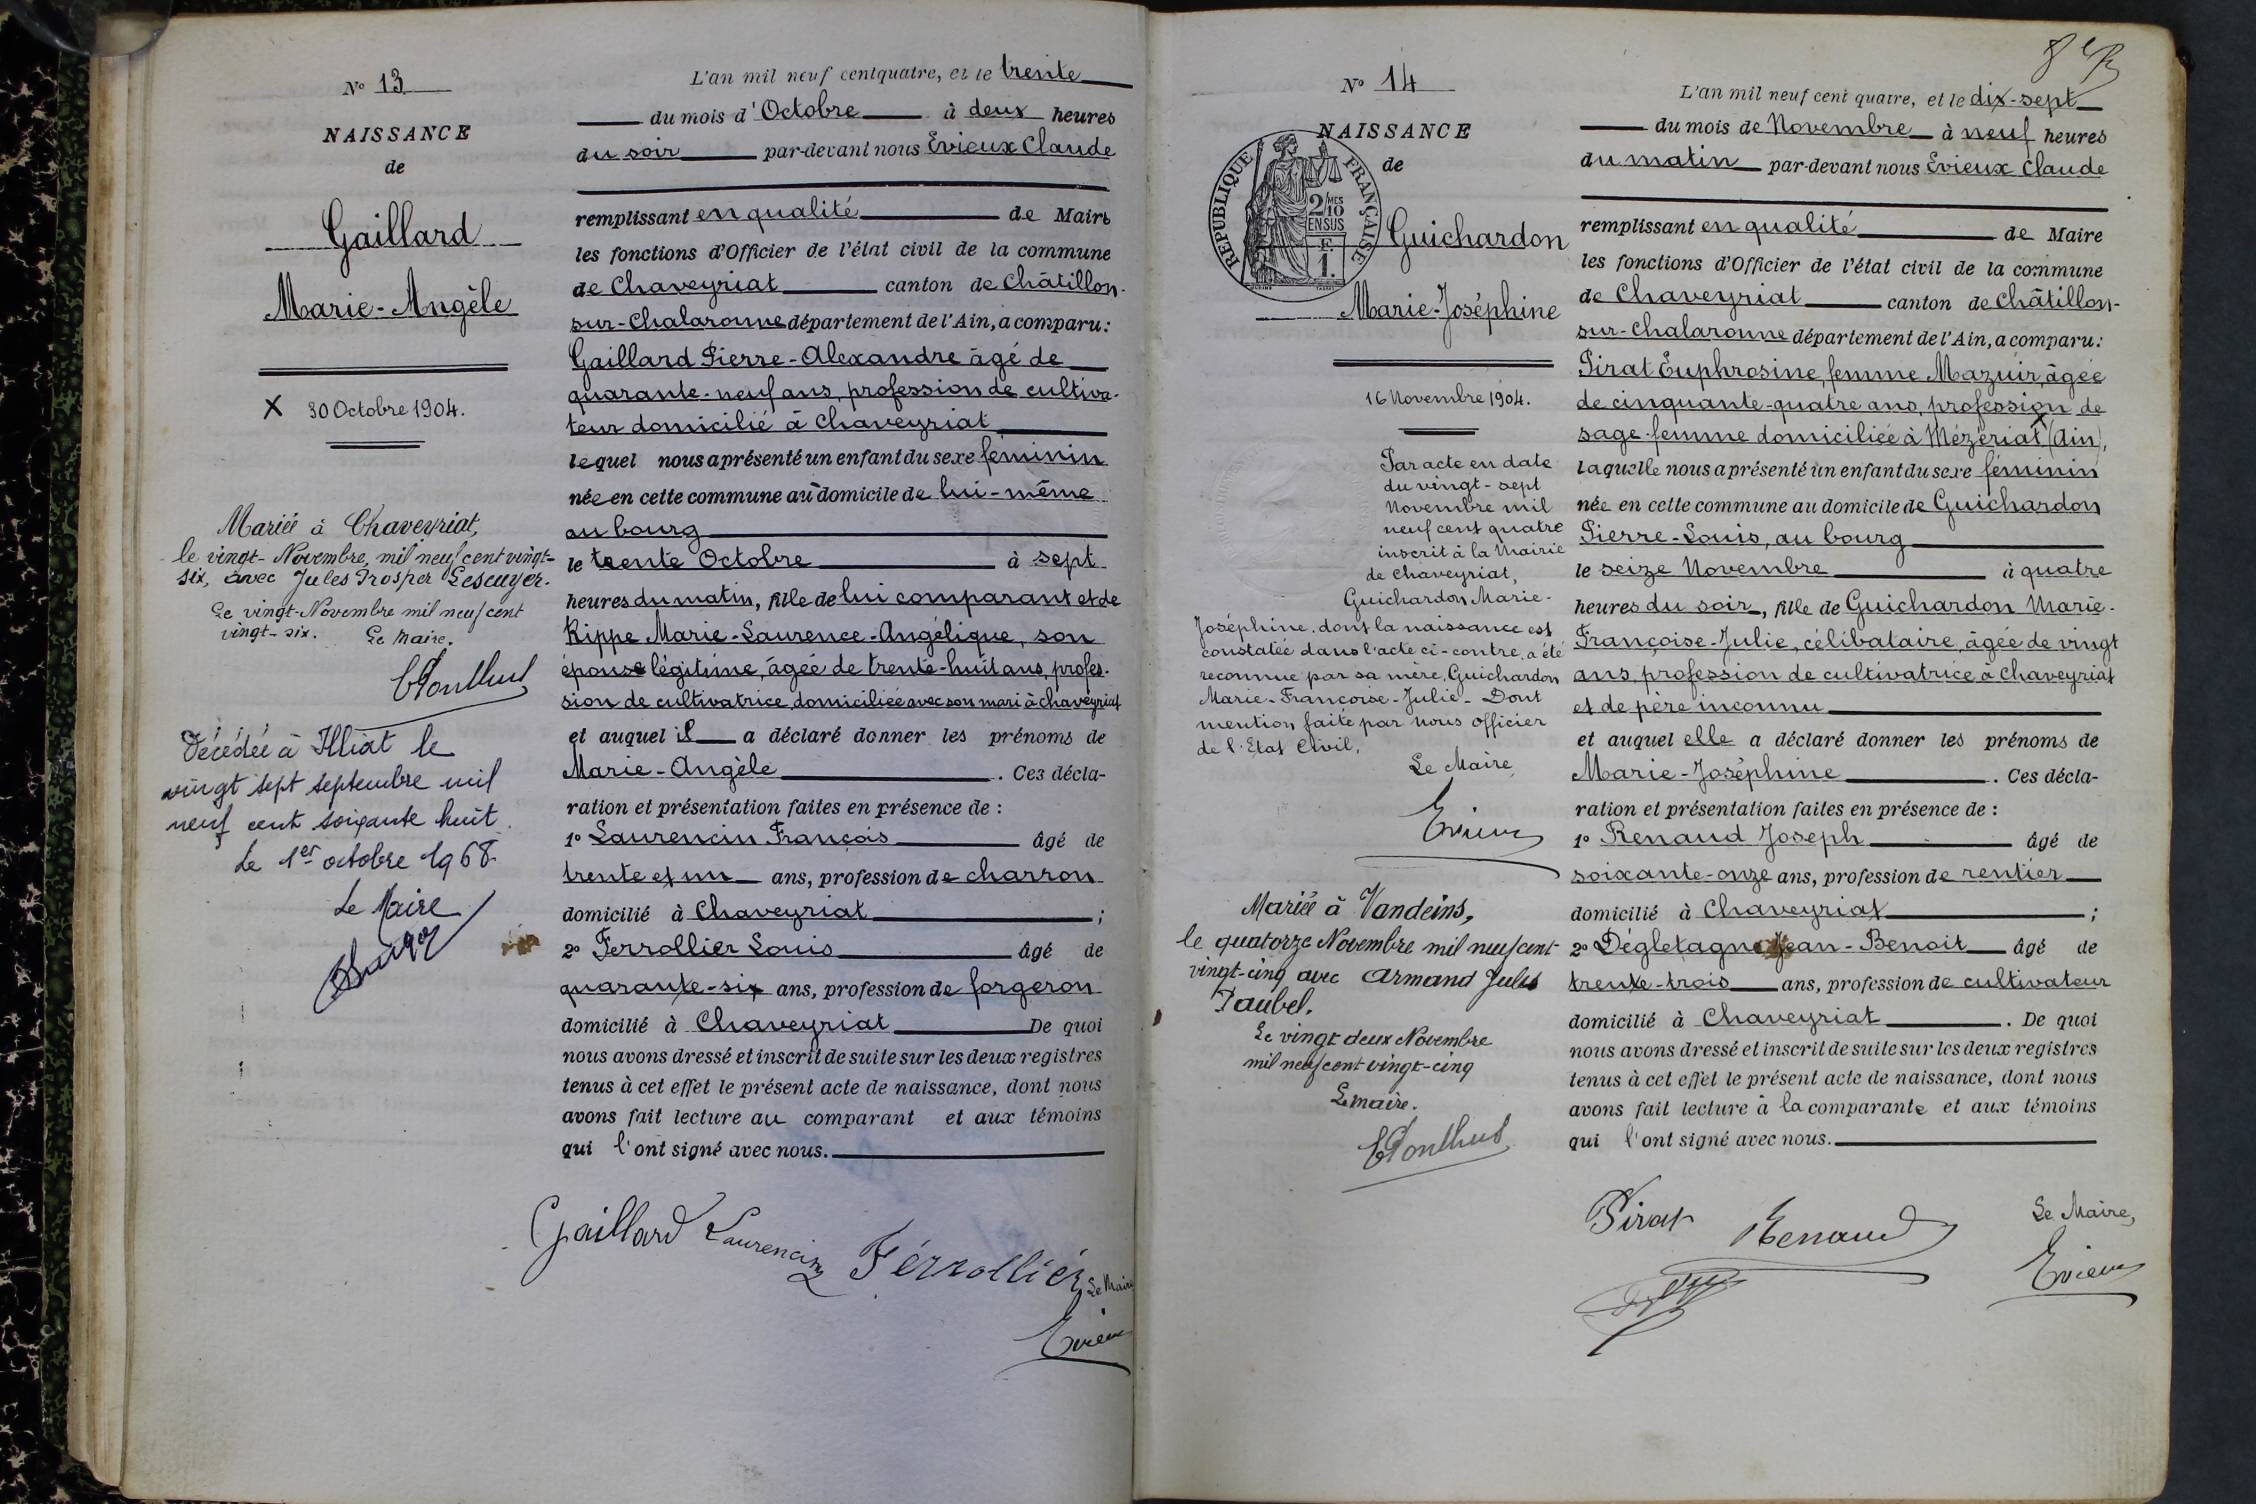 N° 13
NAISSANCE
de
Gaillard
Marie-Angèle
X 30 Octobre 1904.
Mariée à Chaveyriat,
le vingt-Novembre, mil neuf cent vingt-
six, avec Jules Prosper Lescuyer.
Le vingt-Novembre mil neuf cent
vingt-six. Le Maire.
Décédée à Illiat le
vingt sept septembre mil
neuf cent soixante huit.
Le 1er octobre 1968
Le Maire
L'an mil neuf cent quatre, et le trente
du mois d'Octobre à deux heures
du soir par-devant nous Evieux Claude
remplissant en qualité de Maire
les fonctions d'Officier de l'état civil de la commune
de Chaveyriat canton de Châtillon-
sur-Chalaronne département de l'Ain, a comparu:
Gaillard Pierre-Alexandre âgé de
quarante-neuf ans, profession de cultiva-
teur domicilié à Chaveyriat
lequel nous a présenté un enfant du sexe féminin
née en cette commune au domicile de lui-même
au bourg
le trente Octobre à sept
heures du matin, fille de lui comparant et de
Rippe Marie-Laurence-Angélique, son
épouse légitime, âgée de trente-huit ans, profes-
sion de cultivatrice domiciliée avec son mari à Chaveyriat
et auquel il a déclaré donner les prénoms de
Marie-Angèle. Ces décla-
ration et présentation faites en présence de :
1° Laurencin François âgé de
trente et un ans, profession de charron
domicilié à Chaveyriat ;
2° Ferrollier Louis âgé de
quarante-six ans, profession de forgeron
domicilié à Chaveyriat De quoi
nous avons dressé et inscrit de suite sur les deux registres
tenus à cet effet le présent acte de naissance, dont nous
avons fait lecture au comparant et aux témoins
qui l'ont signé avec nous.
Gaillard Laurencin Férrolliér Le Maire
Evieux
8e
N° 14
NAISSANCE
de
REPUBLIQUE FRANÇAISE
2/10 MES
EN SUS
F.
1.
Guichardon
Marie-Joséphine
16 Novembre 1904.
Par acte en date
du vingt-sept
Novembre mil
neuf cent quatre
inscrit à la Mairie
de Chaveyriat,
Guichardon Marie-
Joséphine, dont la naissance est
constatée dans l'acte ci-contre, a été
reconnue par sa mère, Guichardon
Marie-Francoise-Julie- Dont
mention faite par nous officier
de l'Etat Civil,
Le Maire,
Evieux
Mariée à Vandeins,
le quatorze Novembre mil neuf cent-
vingt-cinq avec Armand Jules
Paubel.
Le vingt deux Novembre
mil neuf cent vingt-cinq
Le maire.
L'an mil neuf cent quatre, et le dix-sept
du mois de Novembre à neuf heures
du matin par-devant nous Evieux Claude
remplissant en qualité de Maire
les fonctions d'Officier de l'état civil de la commune
de Chaveyriat canton de Châtillon-
sur-Chalaronne département de l'Ain, a comparu:
Pirat Euphrosine, femme Mazuir, âgée
de cinquante-quatre ans, profession de
sage-femme domiciliée à Mézériat (Ain),
laquelle nous a présenté un enfant du sexe féminin
née en cette commune au domicile de Guichardon
Pierre-Louis, au bourg
le seize Novembre à quatre
heures du soir, fille de Guichardon Marie-
Françoise-Julie, célibataire, âgée de vingt
ans, profession de cultivatrice à Chaveyriat
et de père inconnu
et auquel elle a déclaré donner les prénoms de
Marie-Joséphine. Ces décla-
ration et présentation faites en présence de :
1° Renaud Joseph âgé de
soixante-onze ans, profession de rentier
domicilié à Chaveyriat ;
2° Dégletagne Jean-Benoit âgé de
trente-trois ans, profession de cultivateur
domicilié à Chaveyriat. De quoi
nous avons dressé et inscrit de suite sur les deux registres
tenus à cet effet le présent acte de naissance, dont nous
avons fait lecture à la comparante et aux témoins
qui l'ont signé avec nous.
Pirat Renaud Le Maire,
Evieux